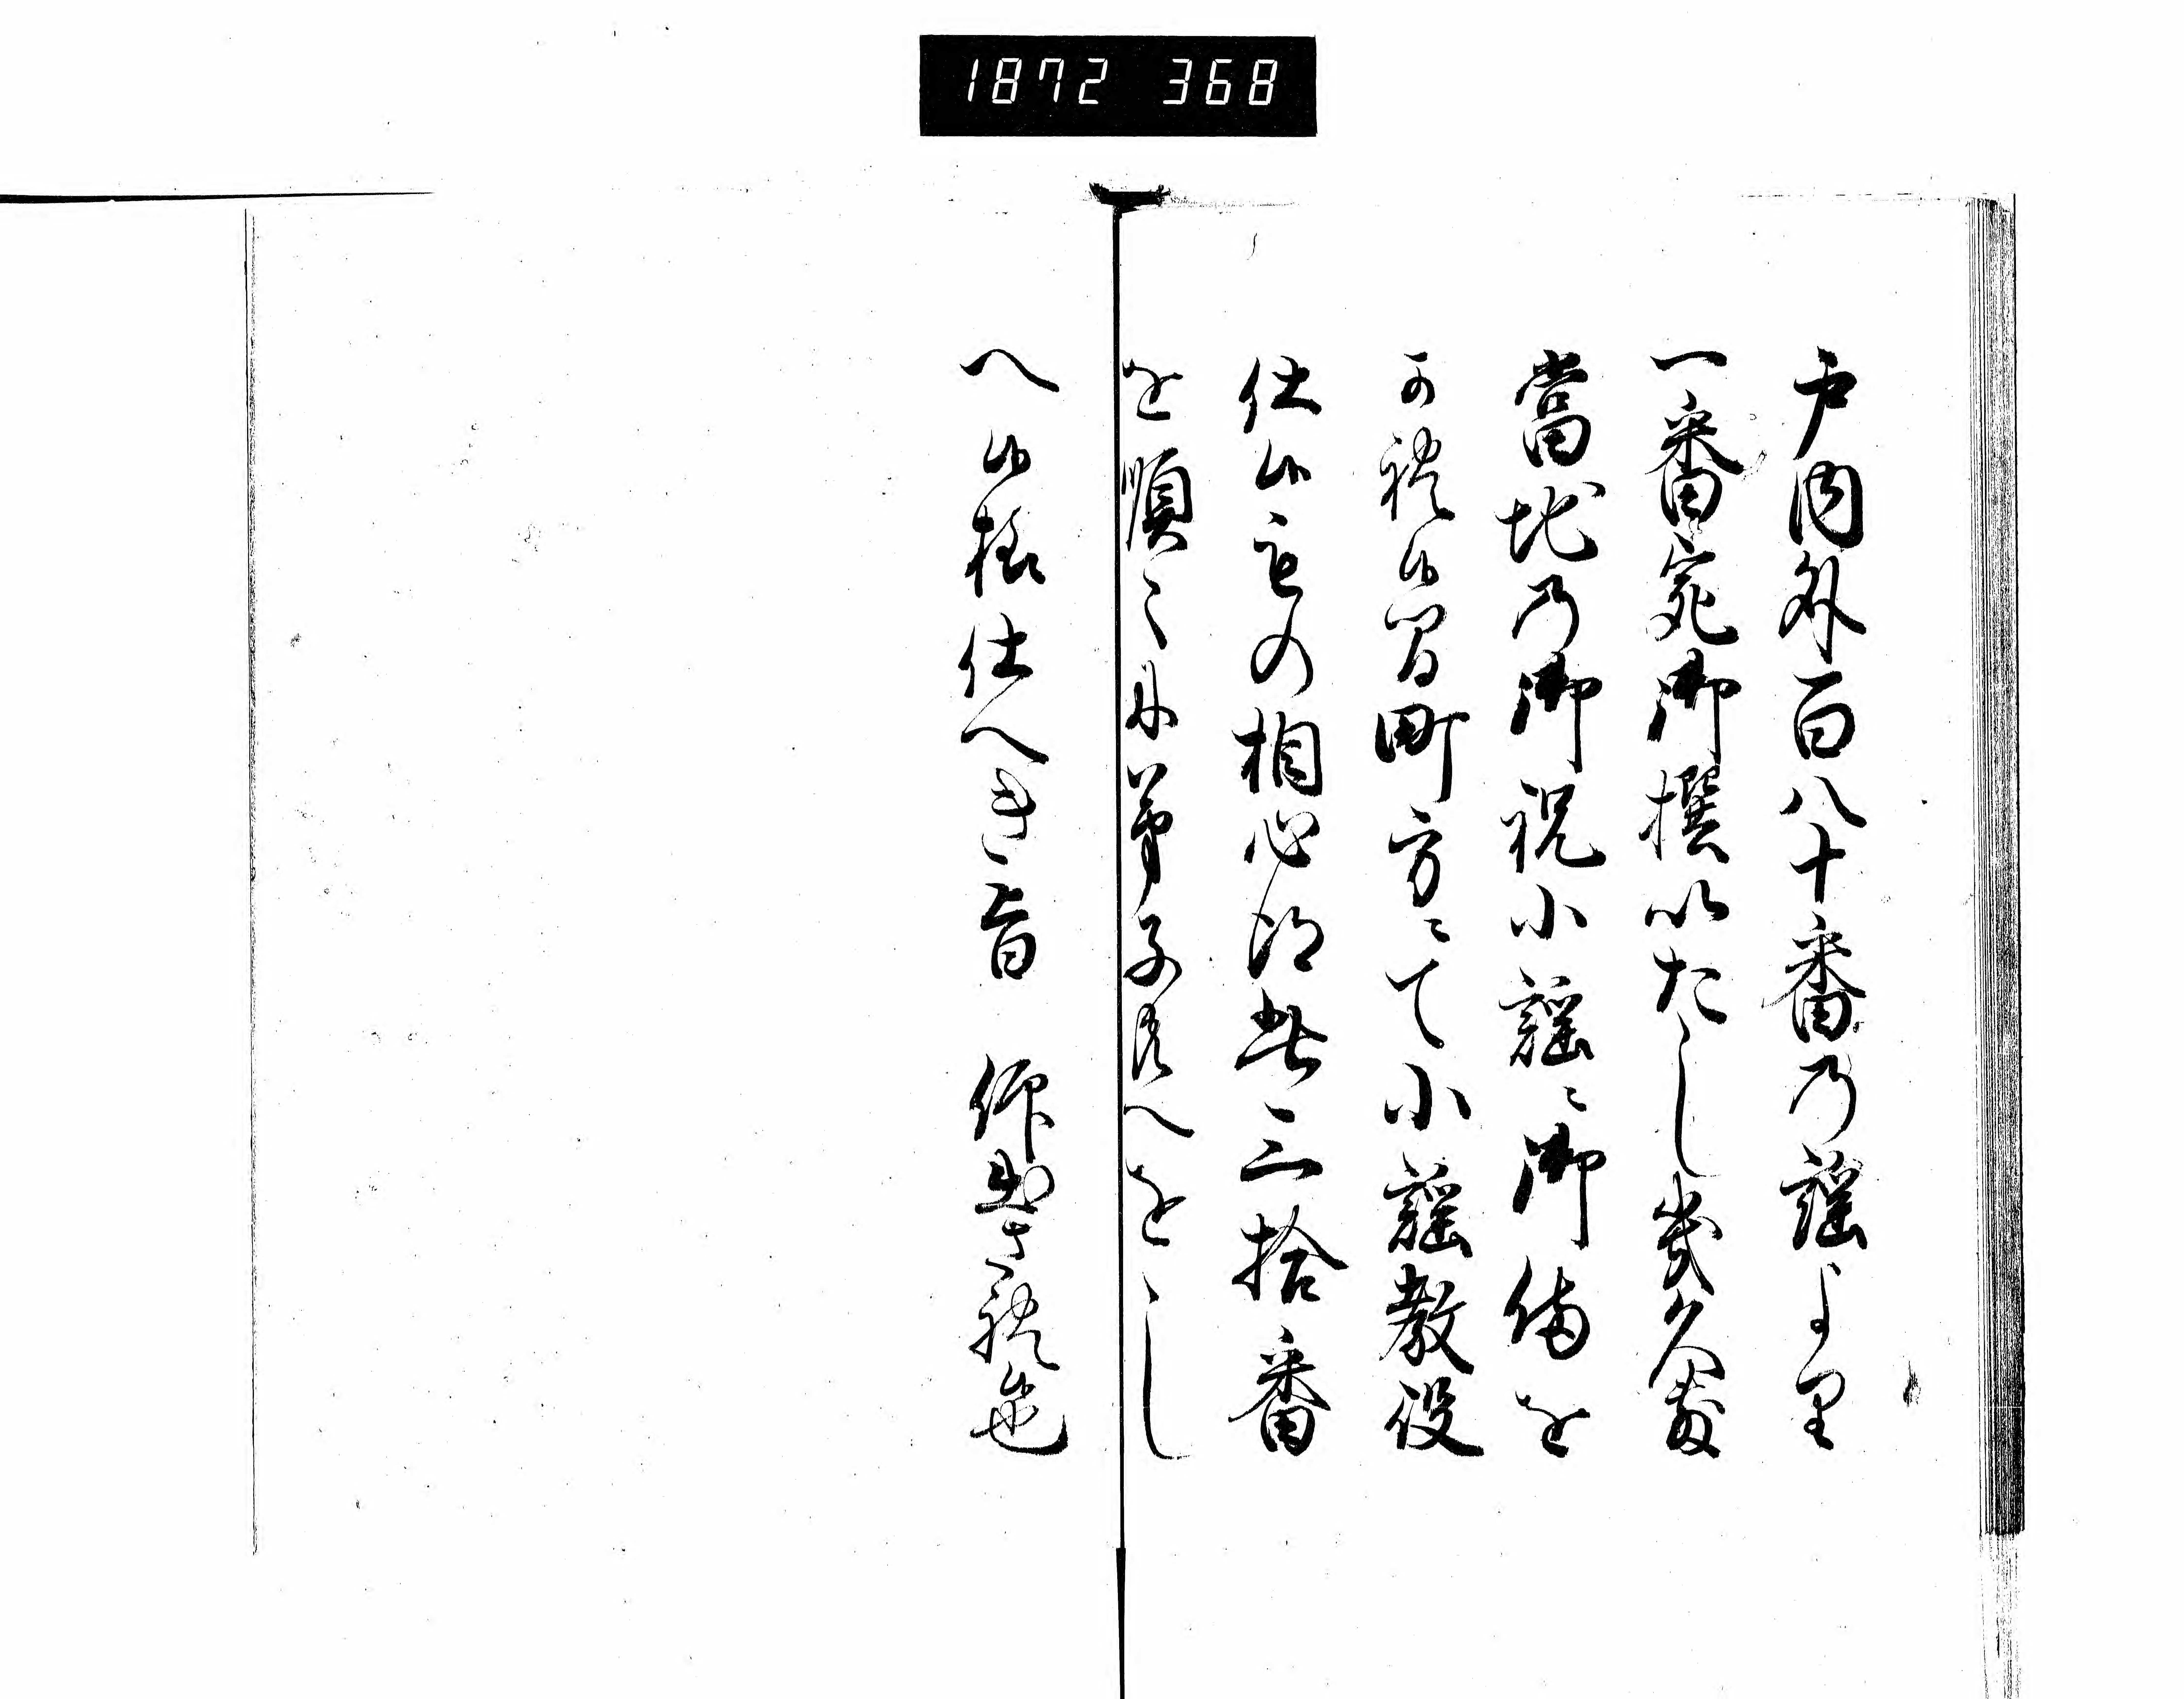 1872 368
戸内外百八十番乃謡より
一番宛御撰いたし幾久敷
當地乃御祝小謡ニ御備を
可被候間町方ニて小謡教役
仕候もの相心得此三拾番
を順々ニ弟子共へをし
へ候様仕へき旨 仰出され候也